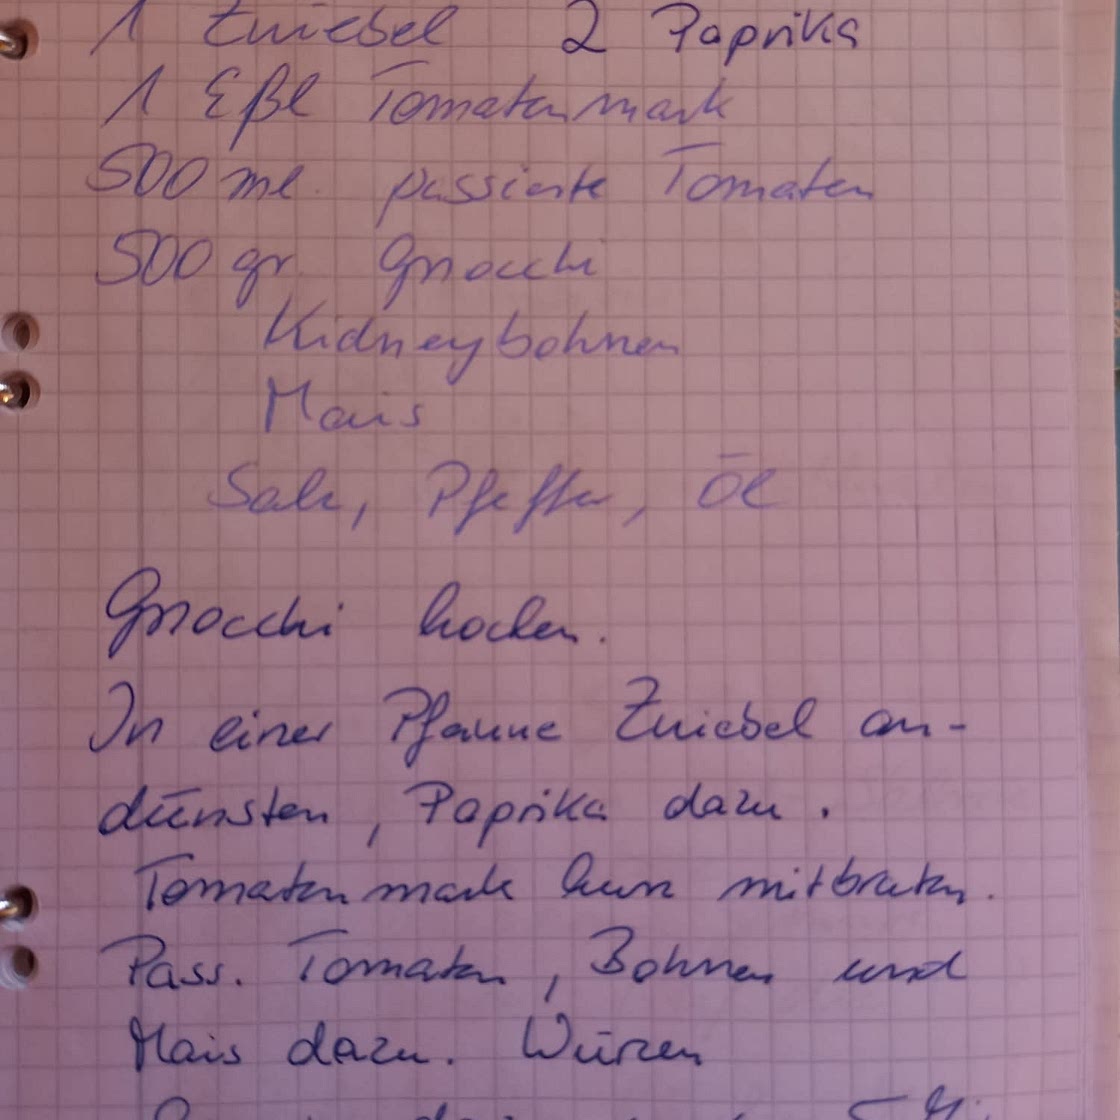 1 Zwiebel 2 Paprika
1 Eßl Tomatenmark
500 ml. passierte Tomaten
500 gr. Gnocchi
Kidneybohnen
Mais
Salz, Pfeffer, Öl
Gnocchi kochen.
In einer Pfanne Zwiebel an-
dünsten, Paprika dazu.
Tomatenmark kurz mitbraten.
Pass. Tomaten, Bohnen und
Mais dazu. Würzen